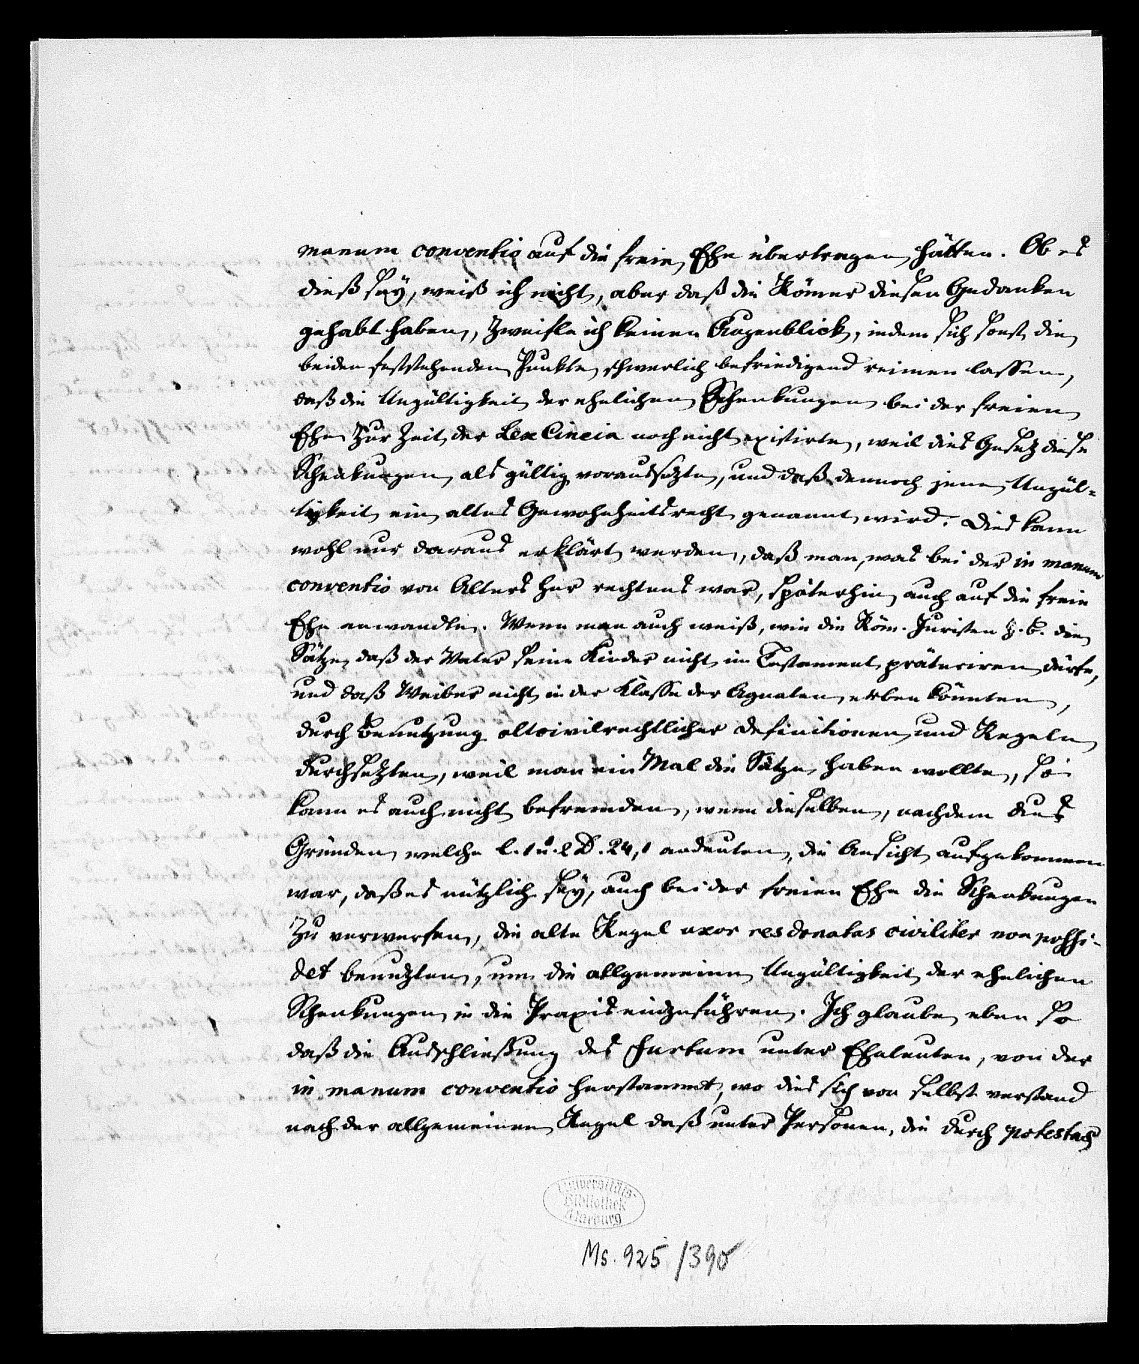 manum conventio auf die freie Ehe übertragen hätten. Ob es
dieß sey, weiß ich nicht, aber daß die Römer diesen Gedanken
gehabt haben, zweifle ich keinen Augenblick, indem sich sonst die
beiden feststehenden Punkte schwerlich befriedigend reimen lassen,
daß die Ungültigkeit der ehelichen Schenkungen bei der freien
Ehe zur Zeit der Lex Cincia noch nicht existirte, weil dies Gesetz diese
Schenkungen als gültig voraussetzte, und daß dennoch jene Ungül-
tigkeit ein altes Gewohnheitsrecht genannt wird. Dies kann
wohl nur daraus erklärt werden, daß man, was bei der in manum
conventio von Alters her rechtens war, späterhin auch auf die freie
Ehe anwandte. Wenn man auch weiß, wie die Röm. Juristen z. B. die
Sätze, daß der Vater seine Kinder nicht im Testament präteriren dürfe,
und daß Weiber nicht in der Klasse der Agnaten erben könnten,
durch Benutzung altcivilrechtlicher Definitionen und Regeln
durchsetzten, weil man ein Mal die Sätze haben wollte, so
kann es auch nicht befremden, wenn dieselben, nachdem aus
Gründen welche l. 1 u. 2 D. 24,1 andeuten, die Ansicht aufgekommen
war, daß es nützlich sey, auch bei der freien Ehe die Schenkungen
zu verwerfen, die alte Regel uxor res donatas civiliter non possi-
det benutzten, um die allgemeine Ungültigkeit der ehelichen
Schenkungen in die Praxis einzuführen. Ich glaube eben so
daß die Ausschließung des furtum unter Eheleuten, von der
in manum conventio herstammt, wo dies sich von selbst verstand
nach der allgemeinen Regel daß unter Personen, die durch potestas
Universitäts-
Bibliothek
Marburg
Ms. 925/390